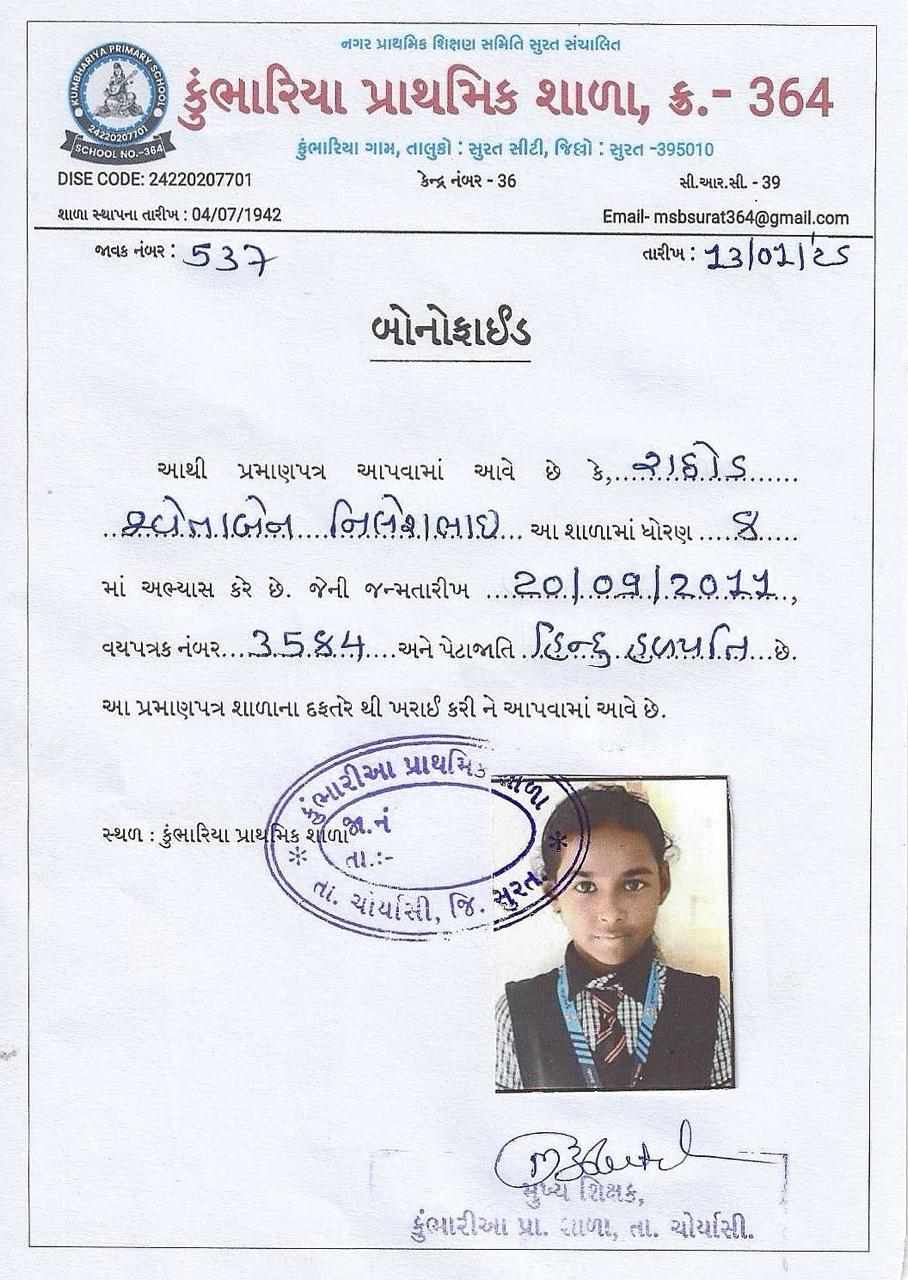 નગર પ્રાથમિક શિક્ષણ સમિતિ સુરત સંચાલિત
KUMBHARIYA PRIMARY SCHOOL
24220207701
SCHOOL NO.-364
કુંભારિયા પ્રાથમિક શાળા, ક્ર.- 364
કુંભારિયા ગામ, તાલુકો : સુરત સીટી, જિલ્લો : સુરત -395010
DISE CODE: 24220207701 કેન્દ્ર નંબર - 36 સી.આર.સી. - 39
શાળા સ્થાપના તારીખ : 04/07/1942 Email- msbsurat364@gmail.com
જાવક નંબર : 537 તારીખ : 13/01/25
બોનોફાઈડ
આથી પ્રમાણપત્ર આપવામાં આવે છે કે, રાઠોડ
શ્વેતાબેન નિલેશભાઇ આ શાળામાં ધોરણ 8
માં અભ્યાસ કરે છે. જેની જન્મતારીખ 20/09/2011,
વયપત્રક નંબર 3584 અને પેટાજાતિ હિન્દુ હળપતિ છે.
આ પ્રમાણપત્ર શાળાના દફતરે થી ખરાઈ કરી ને આપવામાં આવે છે.
કુંભારીઆ પ્રાથમિક શાળા
સ્થળ : કુંભારિયા પ્રાથમિક શાળા
જા.નં
તા.:-
તા. ચોર્યાસી, જિ. સુરત.
મુખ્ય શિક્ષક,
કુંભારીઆ પ્રા. શાળા, તા. ચોર્યાસી.